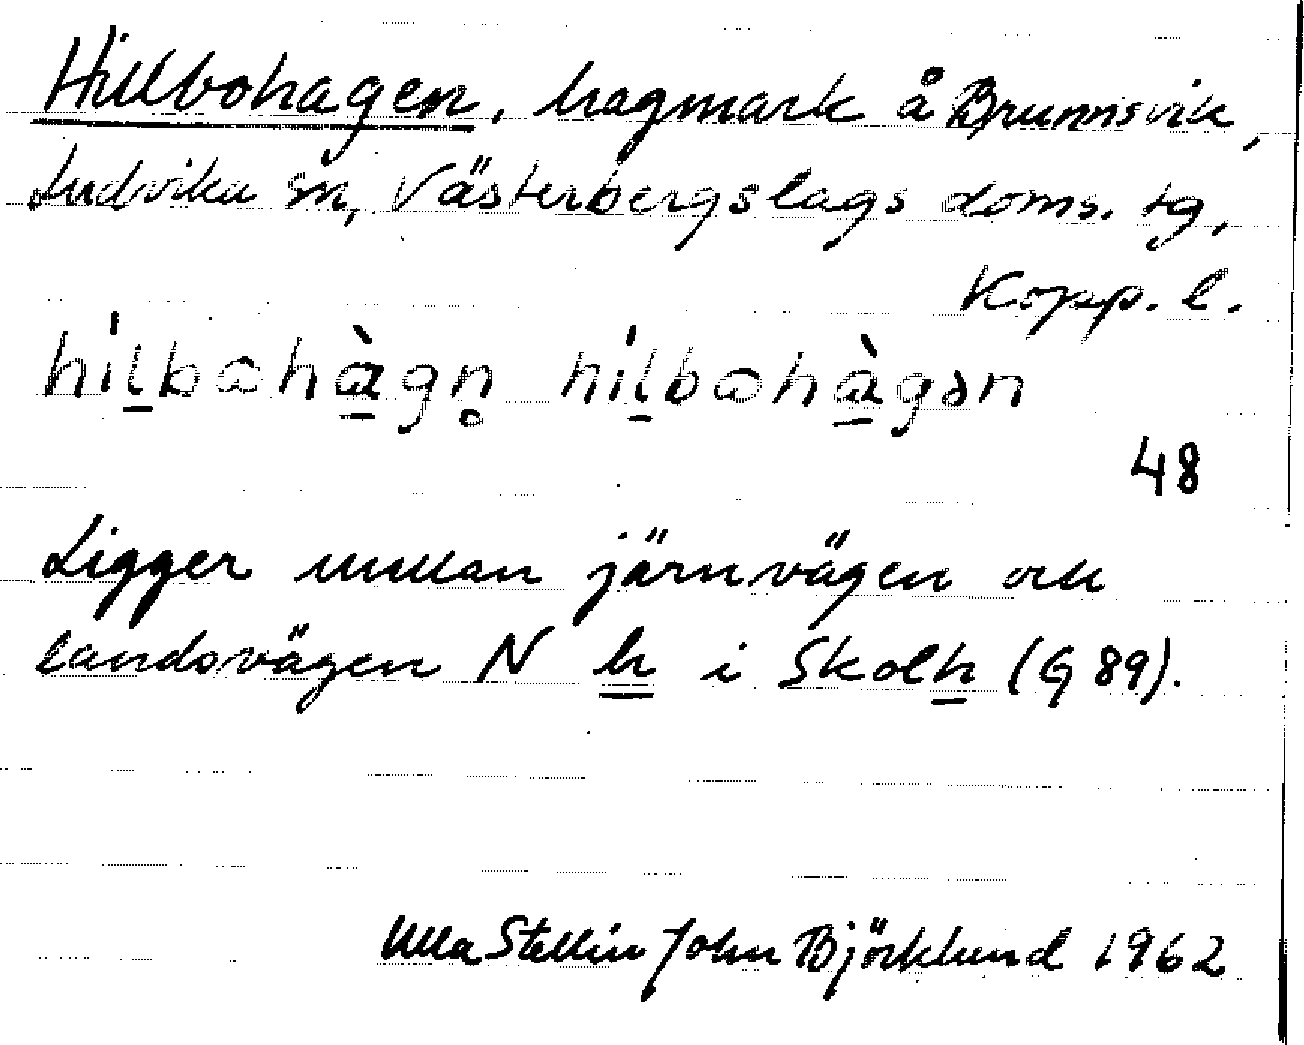 Hillbohagen, hagmark å Brunnsvik,
Ludvika sn, Västerbergslags doms. tg,
Kopp. l.
híl̠bɷhà̠gn̥ híl̠bɷhà̠gən
48
Ligger mellan järnvägen och
landsvägen N h i Skolh (G 89).
Ulla Stellin John Björklund 1962